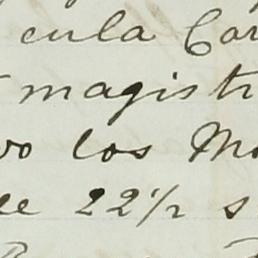 en la Cor
magistr
vo los Mo
de 22 1/2 s